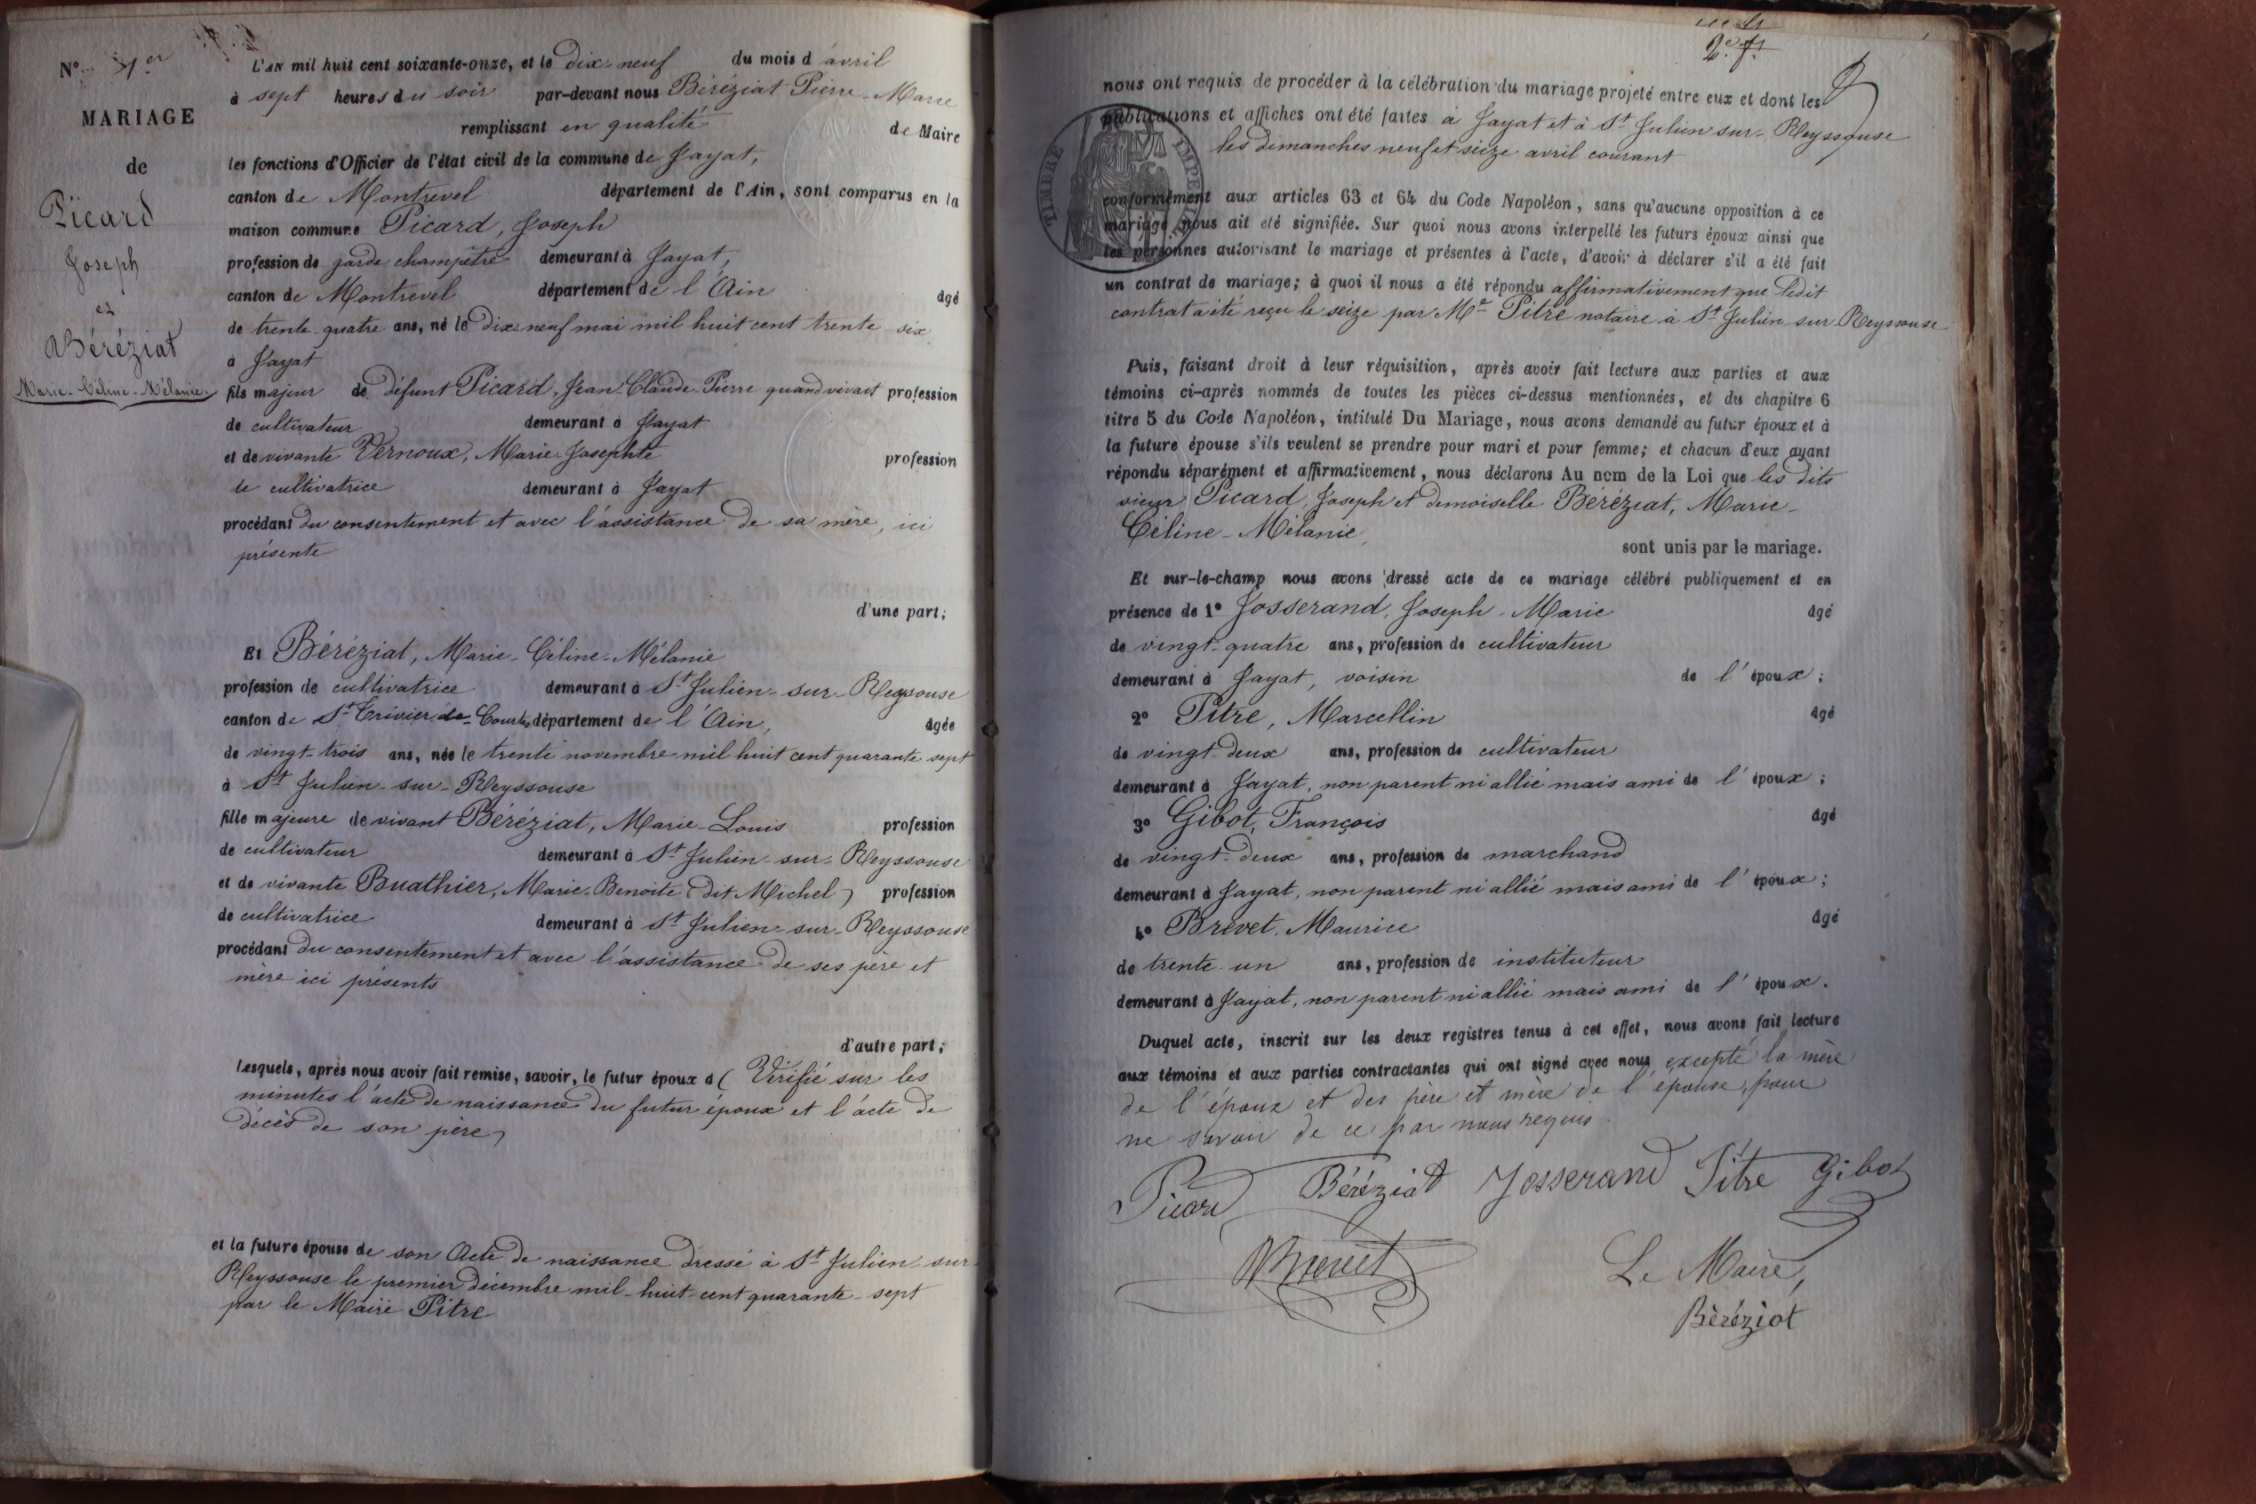 N° 1er
MARIAGE
de
Picard
Joseph
et
Béréziat
Marie-Céline-Mélanie.
L'AN mil huit cent soixante-onze, et le dix-neuf du mois d'avril
à sept heures du soir par-devant nous Béréziat Pierre-Marie
remplissant en qualité de Maire
les fonctions d'Officier de l'état civil de la commune de Jayat,
canton de Montrevel département de l'Ain, sont comparus en la
maison commune Picard, Joseph
profession de garde champêtre demeurant à Jayat,
canton de Montrevel département de l'Ain âgé
de trente-quatre ans, né le dix-neuf mai mil huit cent trente-six
à Jayat
fils majeur de défunt Picard, Jean-Claude-Pierre quand vivait profession
de cultivateur demeurant à Jayat
et de vivante Vernoux, Marie-Josephte profession
de cultivatrice demeurant à Jayat
procédant du consentement et avec l'assistance de sa mère, ici
présente
d'une part;
Et Béréziat, Marie-Céline-Mélanie
profession de cultivatrice demeurant à St Julien-sur-Reyssouse
canton de St Trivier de Courtes département de l'Ain, âgée
de vingt-trois ans, née le trente novembre mil huit cent quarante-sept
à St Julien-sur-Reyssouse
fille majeure de vivant Béréziat, Marie-Louis profession
de cultivateur demeurant à St Julien-sur-Reyssouse
et de vivante Buathier, Marie-Benoite (dit Michel) profession
de cultivatrice demeurant à St Julien-sur-Reyssouse
procédant du consentement et avec l'assistance de ses père et
mère ici présents
d'autre part;
Lesquels, après nous avoir fait remise, savoir, le futur époux d (Vérifié sur les
minutes l'acte de naissance du futur époux et l'acte de
décès de son père)
et la future épouse de son Acte de naissance dressé à St Julien-sur-
Reyssouse le premier décembre mil-huit-cent quarante-sept
par le Maire Pitre
2e f.
nous ont requis de procéder à la célébration du mariage projeté entre eux et dont les
publications et affiches ont été faites à Jayat et à St Julien-sur-Reyssouse
les dimanches neuf et seize avril courant
TIMBRE IMPE
conformément aux articles 63 et 64 du Code Napoléon, sans qu'aucune opposition à ce
mariage nous ait été signifiée. Sur quoi nous avons interpellé les futurs époux ainsi que
les personnes autorisant le mariage et présentes à l'acte, d'avoir à déclarer s'il a été fait
un contrat de mariage; à quoi il nous a été répondu affirmativement que ledit
contrat a été reçu le seize par Me Pitre notaire à St Julien-sur-Reyssouse
Puis, faisant droit à leur réquisition, après avoir fait lecture aux parties et aux
témoins ci-après nommés de toutes les pièces ci-dessus mentionnées, et du chapitre 6
titre 5 du Code Napoléon, intitulé Du Mariage, nous avons demandé au futur époux et à
la future épouse s'ils veulent se prendre pour mari et pour femme; et chacun d'eux ayant
répondu séparément et affirmativement, nous déclarons Au nom de la Loi que les dits
sieur Picard, Joseph et demoiselle Béréziat, Marie-
Céline-Mélanie,
sont unis par le mariage.
Et sur-le-champ nous avons dressé acte de ce mariage célébré publiquement et en
présence de 1° Josserand, Joseph-Marie âgé
de vingt-quatre ans, profession de cultivateur
demeurant à Jayat, voisin de l'époux;
2° Pitre, Marcellin âgé
de vingt-deux ans, profession de cultivateur
demeurant à Jayat, non parent ni allié mais ami de l'époux;
3° Gibot, François âgé
de vingt-deux ans, profession de marchand
demeurant à Jayat, non parent ni allié mais ami de l'époux;
4° Brevet, Maurice âgé
de trente-un ans, profession de instituteur
demeurant à Jayat, non parent ni allié mais ami de l'époux.
Duquel acte, inscrit sur les deux registres tenus à cet effet, nous avons fait lecture
aux témoins et aux parties contractantes qui ont signé avec nous excepté la mère
de l'époux et des père et mère de l'épouse, pour
ne savoir de ce par nous requis.
Picard Béréziat Josserand Pitre Gibot
Brevet
Le Maire,
Béréziat